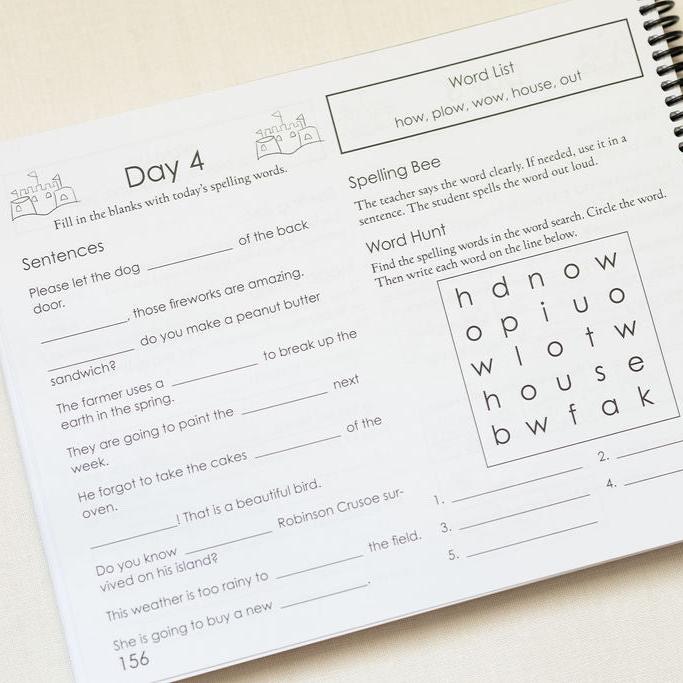 Day 4
Fill in the blanks with today's spelling words.
Sentences
Please let the dog __________ of the back
door.
__________, those fireworks are amazing.
__________ do you make a peanut butter
sandwich?
The farmer uses a __________ to break up the
earth in the spring.
They are going to paint the __________ next
week.
He forgot to take the cakes __________ of the
oven.
__________! That is a beautiful bird.
Do you know __________ Robinson Crusoe sur-
vived on his island?
This weather is too rainy to __________ the field.
She is going to buy a new __________.
156
Word List
how, plow, wow, house, out
Spelling Bee
The teacher says the word clearly. If needed, use it in a
sentence. The student spells the word out loud.
Word Hunt
Find the spelling words in the word search. Circle the word.
Then write each word on the line below.
h d n o w
o p i u o
w l o t w
h o u s e
b w f a k
1. __________ 2. __________
3. __________ 4. __________
5. __________